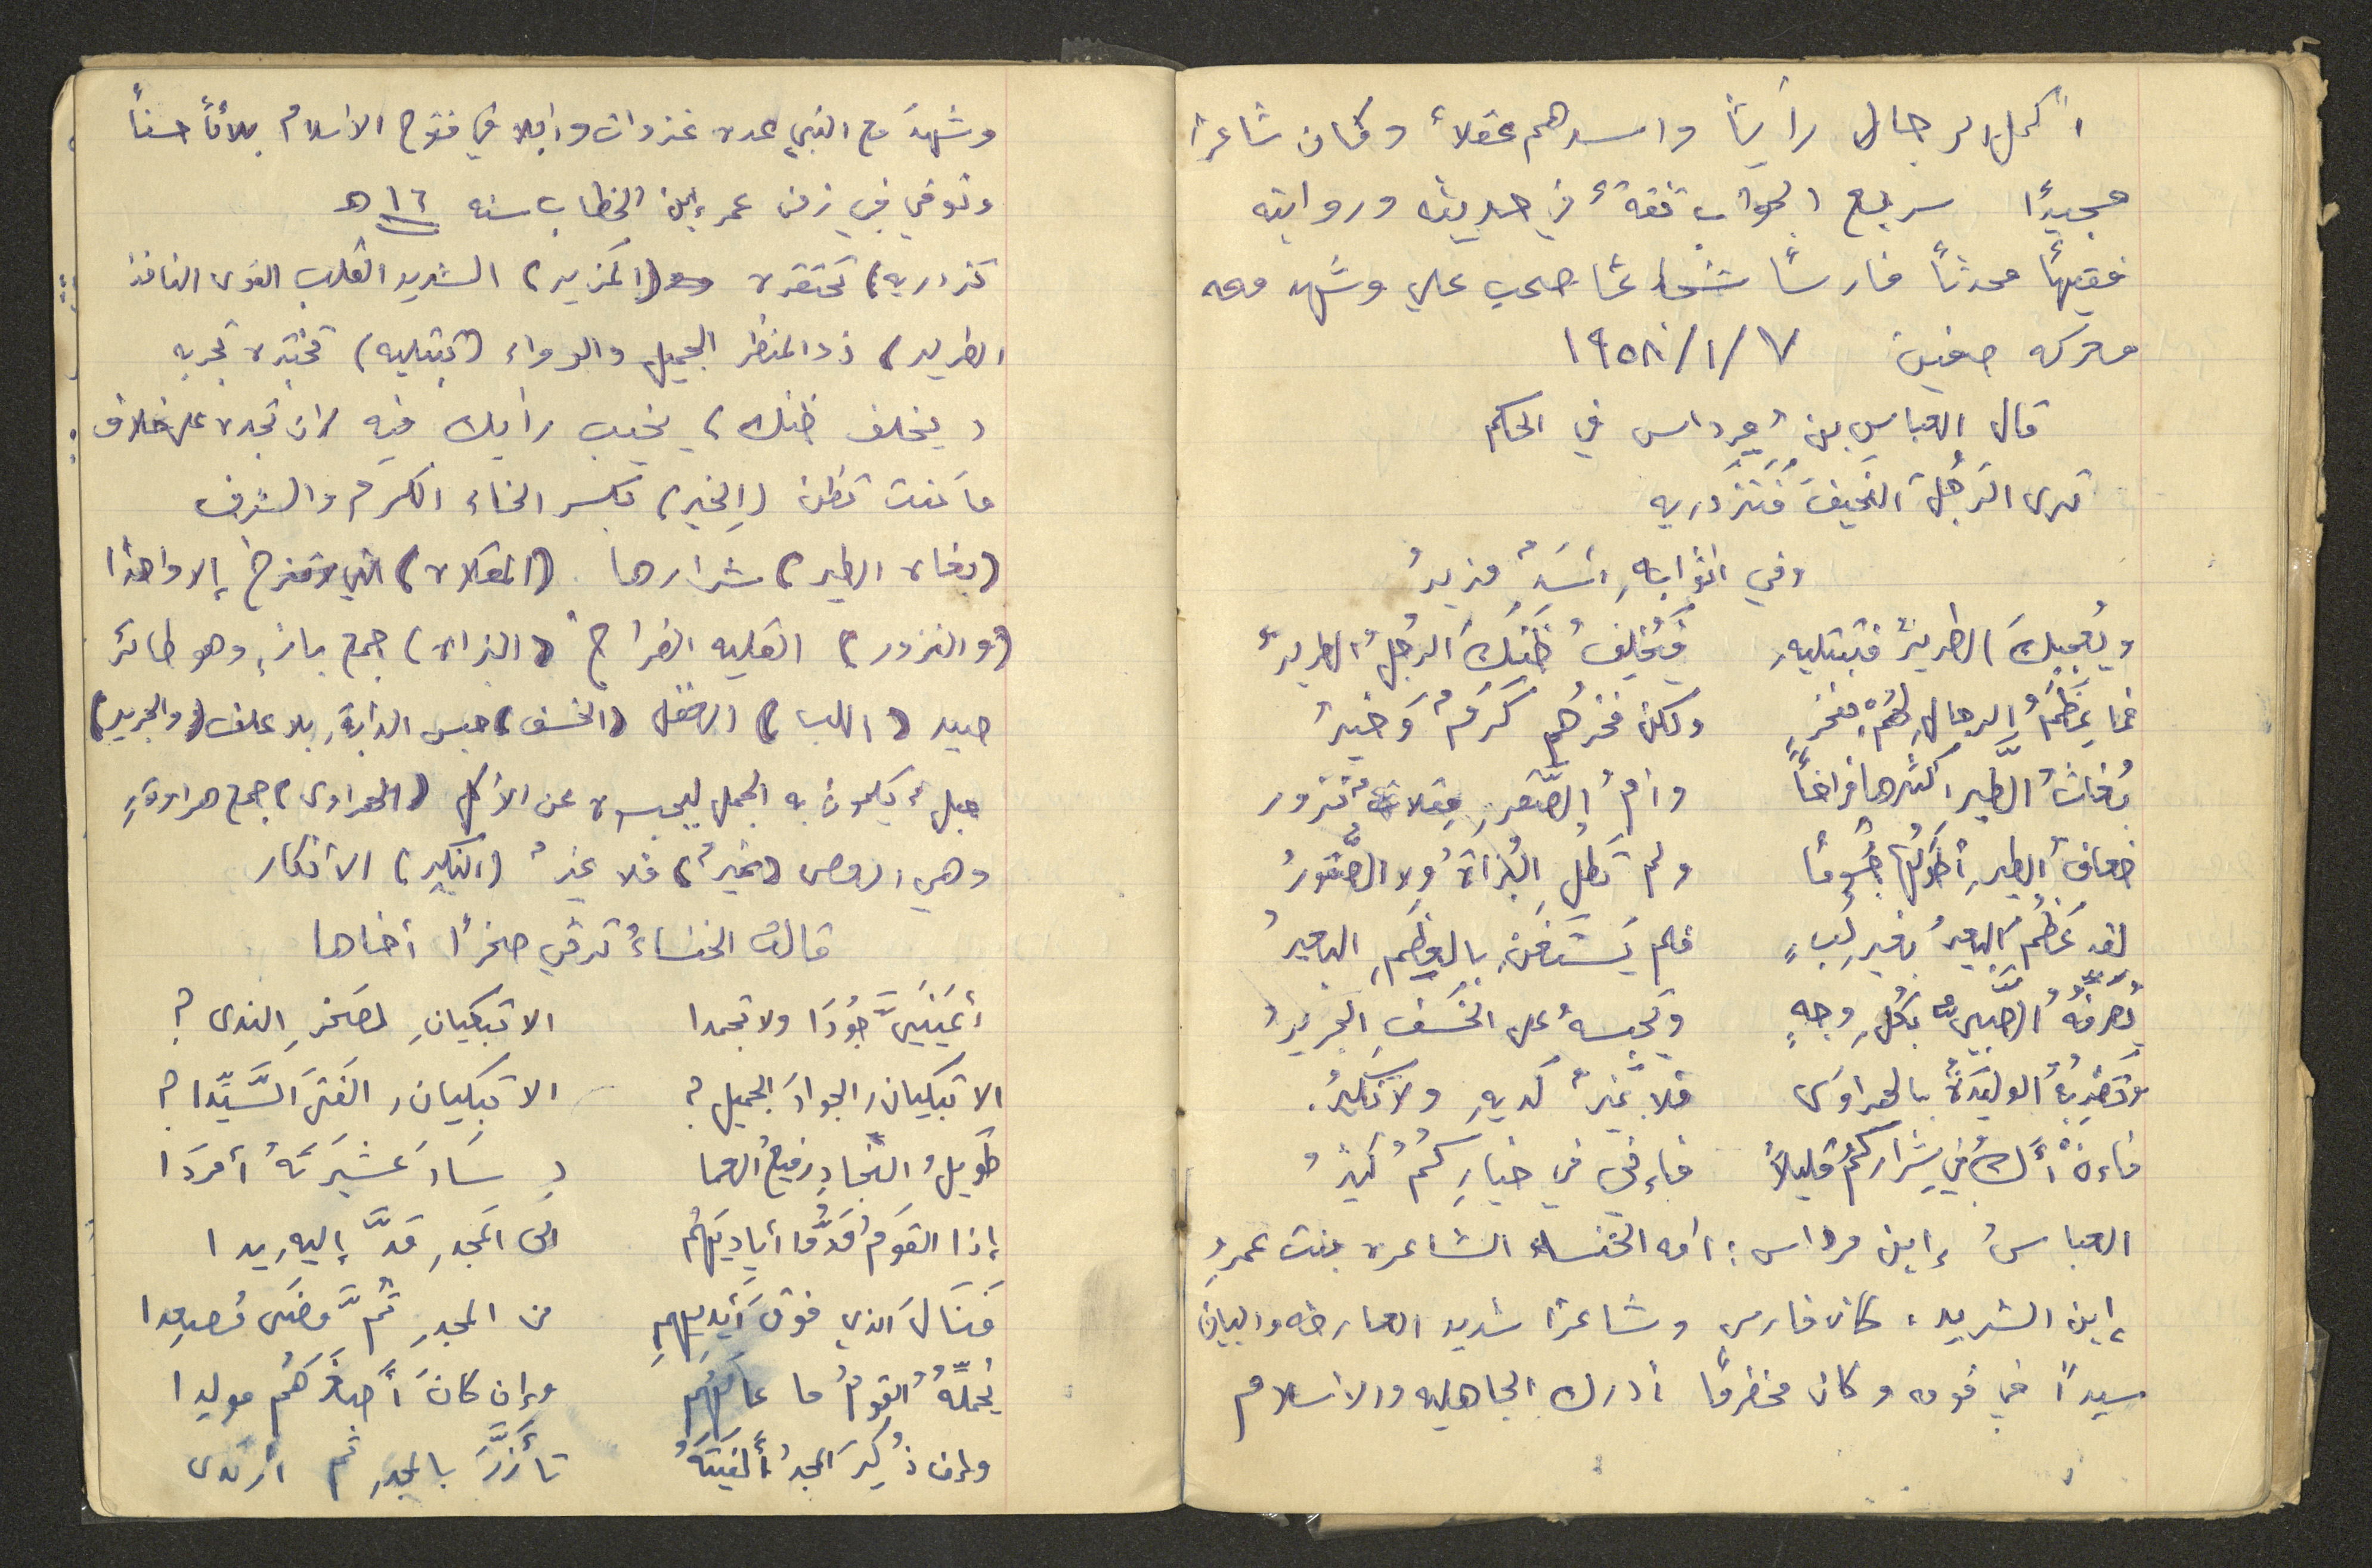 أكمل الرجال رأيًا واسدهم عقلاً وكان شاعرًا
مجيدًا سريع الجواب ثقةً في حديثه وروايته
فقيهًا محدثاً فارساً شجاعًا صحب علي وشهد معه
معركه صفين ٧/١/١٩٥٨
قال العباس بن مرداس في الحكم
ترى الرَجُلَ النَحيفَ فَتَزدريه
وفي اثوابهِ أسَدٌ مزيرُ
ويُعجبكَ الطريرُ فتبتليهِ فَيُخلِفُ ظَنكَ الرجُلُ الطريرُ
فما عِظَمُ الرجالِ لهُمْ بفخرٍ ولكن فخرُهم كَرَمٌ وَخيرُ
بُغاثُ الطَّير أكثرها فراخاً وأمُ الصَّقرِ مِقلاتٌ نزور
ضعافُ الطيرِ أطوَلُها جُسُومًا ولم تَطُلِ البُزاةُ ولا الصُّقورُ
لقد عَظُمَ البعيرُ بغيرِ لُبٍ فلم يَستَغنِ بالعِظَمِ البعيرُ
يُصَرِّفُهُ الصَّبيُّ بكُلِ وجهٍ ويَحبِسهُ على الخَسفِ الجريرُ
وتَضرِبُهُ الوليدَةُ بالهراوى فلا غِيَرٌ لَديهِ ولا نَكيرُ.
فاءنْ أَكُ في شِراركُمُ قليلاً فاءني في خيارِكُمُ كثيرُ
العباسُ إبن مرداس: أمه الخنساء الشاعره بنت عمرو
إبن الشريد، كان فارس وشاعرًا شديد العارضه والبيان
سيداً في قومه وكان مخضرمًا أدرك الجاهليه والاسلام
وشهدَ مع النبي عدة غزوات وابلا في فتوح الاسلام بلائاً حسناً
وتوفي في زمن عمر إبن الخطاب سنه ١٦ ه
تزدريه) تحتقره (المزير) الشديد القلب القوى النافذ
الطرير) ذو المنظر الجميل والرواء (تبتليه) تختبره تجربه
(يخلف ظنك) يخيب رأيك فيه ان تجده على خلاف
ما كنت تظن (الِخير) بكسر الخاء الكرَم والشرف
(بغاث الطير) شرارها (المقلاة) التي لا تفرخ إلا واحدًا
(والنزور) القليله الفراخ (البزاة) جمع بازٍ وهو طائر
صيد (اللب) العقل (الخسف) حبس الدابةِ بلا علف (والجرير)
حبل يكمون به الجمل ليحبسوه عن الأكل (الهراوى) جمع هراوةٍ
وهي العصى (غيرٌ) فلا غيرٌ (النكير) الأنكار
قالت الخنساءُ ترثي صخرًا أخاها
أعَينَيَّ جُودَا ولا تجمدا الا تبكيانِ لصَخرِ الندى؟
الا تبكيانِ الجوادَ الجميل؟ الا تبكيانِ الفَتى السَّيِّدا؟
طَويلُ النِّجادِ رفيعُ العما دِ سَادَ عَشيرَتَهُ أمرَدَا
إذا القَومُ مَدُّوا أياديَهُم الى المَجدِ مَدَّ إليهِ يدا
فَنَالَ الذي فوقَ أيديهِمِ من المجدِ ثُمَّ مضَى مُصعِدا
يُحملِّهُ القومُ ما عالَهُم وإن كانَ أَصغَرَهُم مولدا
وإن ذُكِرَ المجدُ أَلفَيتَهُ تأَزَّرَ بالمجدِ ثم ارتدى